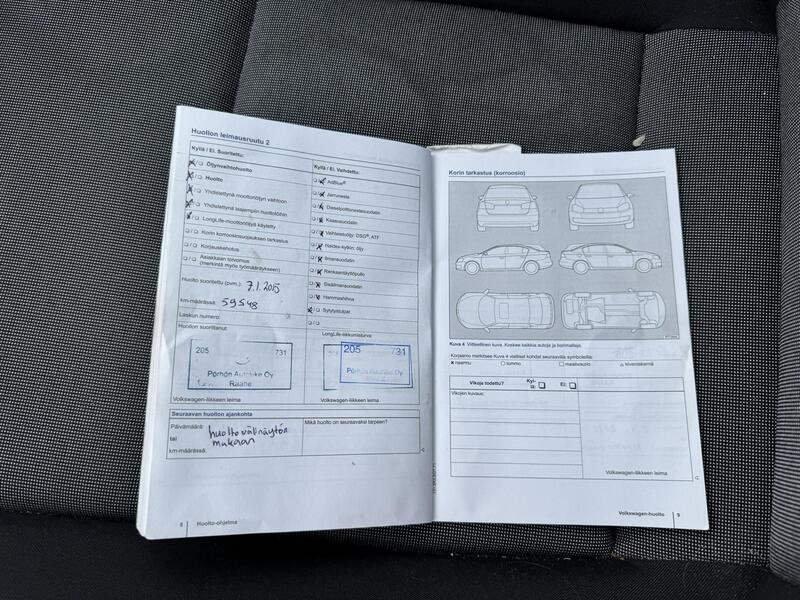 Huollon leimausruutu 2
Kyllä / Ei. Suoritettu:
Öljynvaihtohuolto
Huolto
Yhdistettynä moottoriöljyn vaihtoon
Yhdistettynä laajempiin huoltotöihin
LongLife-moottoriöljyä käytetty
Korin korroosiosuojauksen tarkastus
Korjauskehotus
Asiakkaan toivomus
(merkintä myös työmääräykseen)
Huolto suoritettu (pvm.): 7.1.2015
km-määrässä: 59548
Laskun numero:
Huollon suorittanut:
205 731
Pörhön Autoliike Oy
Raahe
Volkswagen-liikkeen leima
Kyllä / Ei. Vaihdettu:
AdBlue®
Jarruneste
Dieselpolttonestesuodatin
Kaasusuodatin
Vaihteistoöljy: DSG®, ATF
Haldex-kytkin: öljy
Ilmansuodatin
Renkaantäyttöpullo
Sisäilmansuodatin
Hammashihna
Sytytystulpat
LongLife-liikkumisturva
205 731
Pörhön Autoliike Oy
Volkswagen-liikkeen leima
Seuraavan huollon ajankohta
Päivämäärä:
tai
km-määrässä:
huoltovälinäytön
mukaan
Mikä huolto on seuraavaksi tarpeen?
8 Huolto-ohjelma
Korin tarkastus (korroosio)
Kuva 4 Viitteellinen kuva. Koskee kaikkia autoja ja korimalleja.
Korjaamo merkitsee Kuva 4 vialliset kohdat seuraavilla symboleilla:
naarmu lommo maalivaurio kiveniskemä
Vikoja todettu? Kyl-
lä: Ei:
Vikojen kuvaus:
Volkswagen-liikkeen leima
Volkswagen-huolto 9